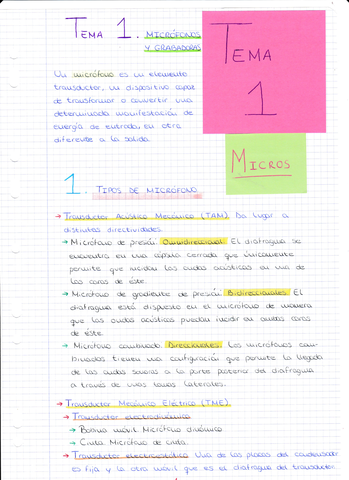 TEMA 1. MICRÓFONOS
Y GRABADORAS
TEMA
1
MICROS
Un micrófono es un elemento
transductor, un dispositivo capaz
de transformar o convertir una
determinada manifestación de
energía de entrada, en otra
diferente a la salida.
1. TIPOS DE MICRÓFONO
→ Transductor Acústico Mecánico (TAM). Da lugar a
distintas directividades.
→ Micrófono de presión. Omnidireccional. El diafragma se
encuentra en una cápsula cerrada que únicamente
permite que incidan las ondas acústicas en una de
las caras de éste.
→ Micrófono de gradiente de presión. Bidireccionales. El
diafragma está dispuesto en el micrófono de manera
que las ondas acústicas puedan incidir en ambas caras
de éste.
→ Micrófono combinado. Direccionales. Los micrófonos com-
binados tienen una configuración que permite la llegada
de las ondas sonoras a la parte posterior del diafragma
a través de unas laterales.
→ Transductor Mecánico Eléctrico (TME).
→ Transductor electrodinámico
→ Bobina móvil. Micrófono dinámico
→ Cinta. Micrófono de cinta.
→ Transductor electrostático. Una de las placas del condensador
es fija y la otra móvil que es el diafragma del transductor.